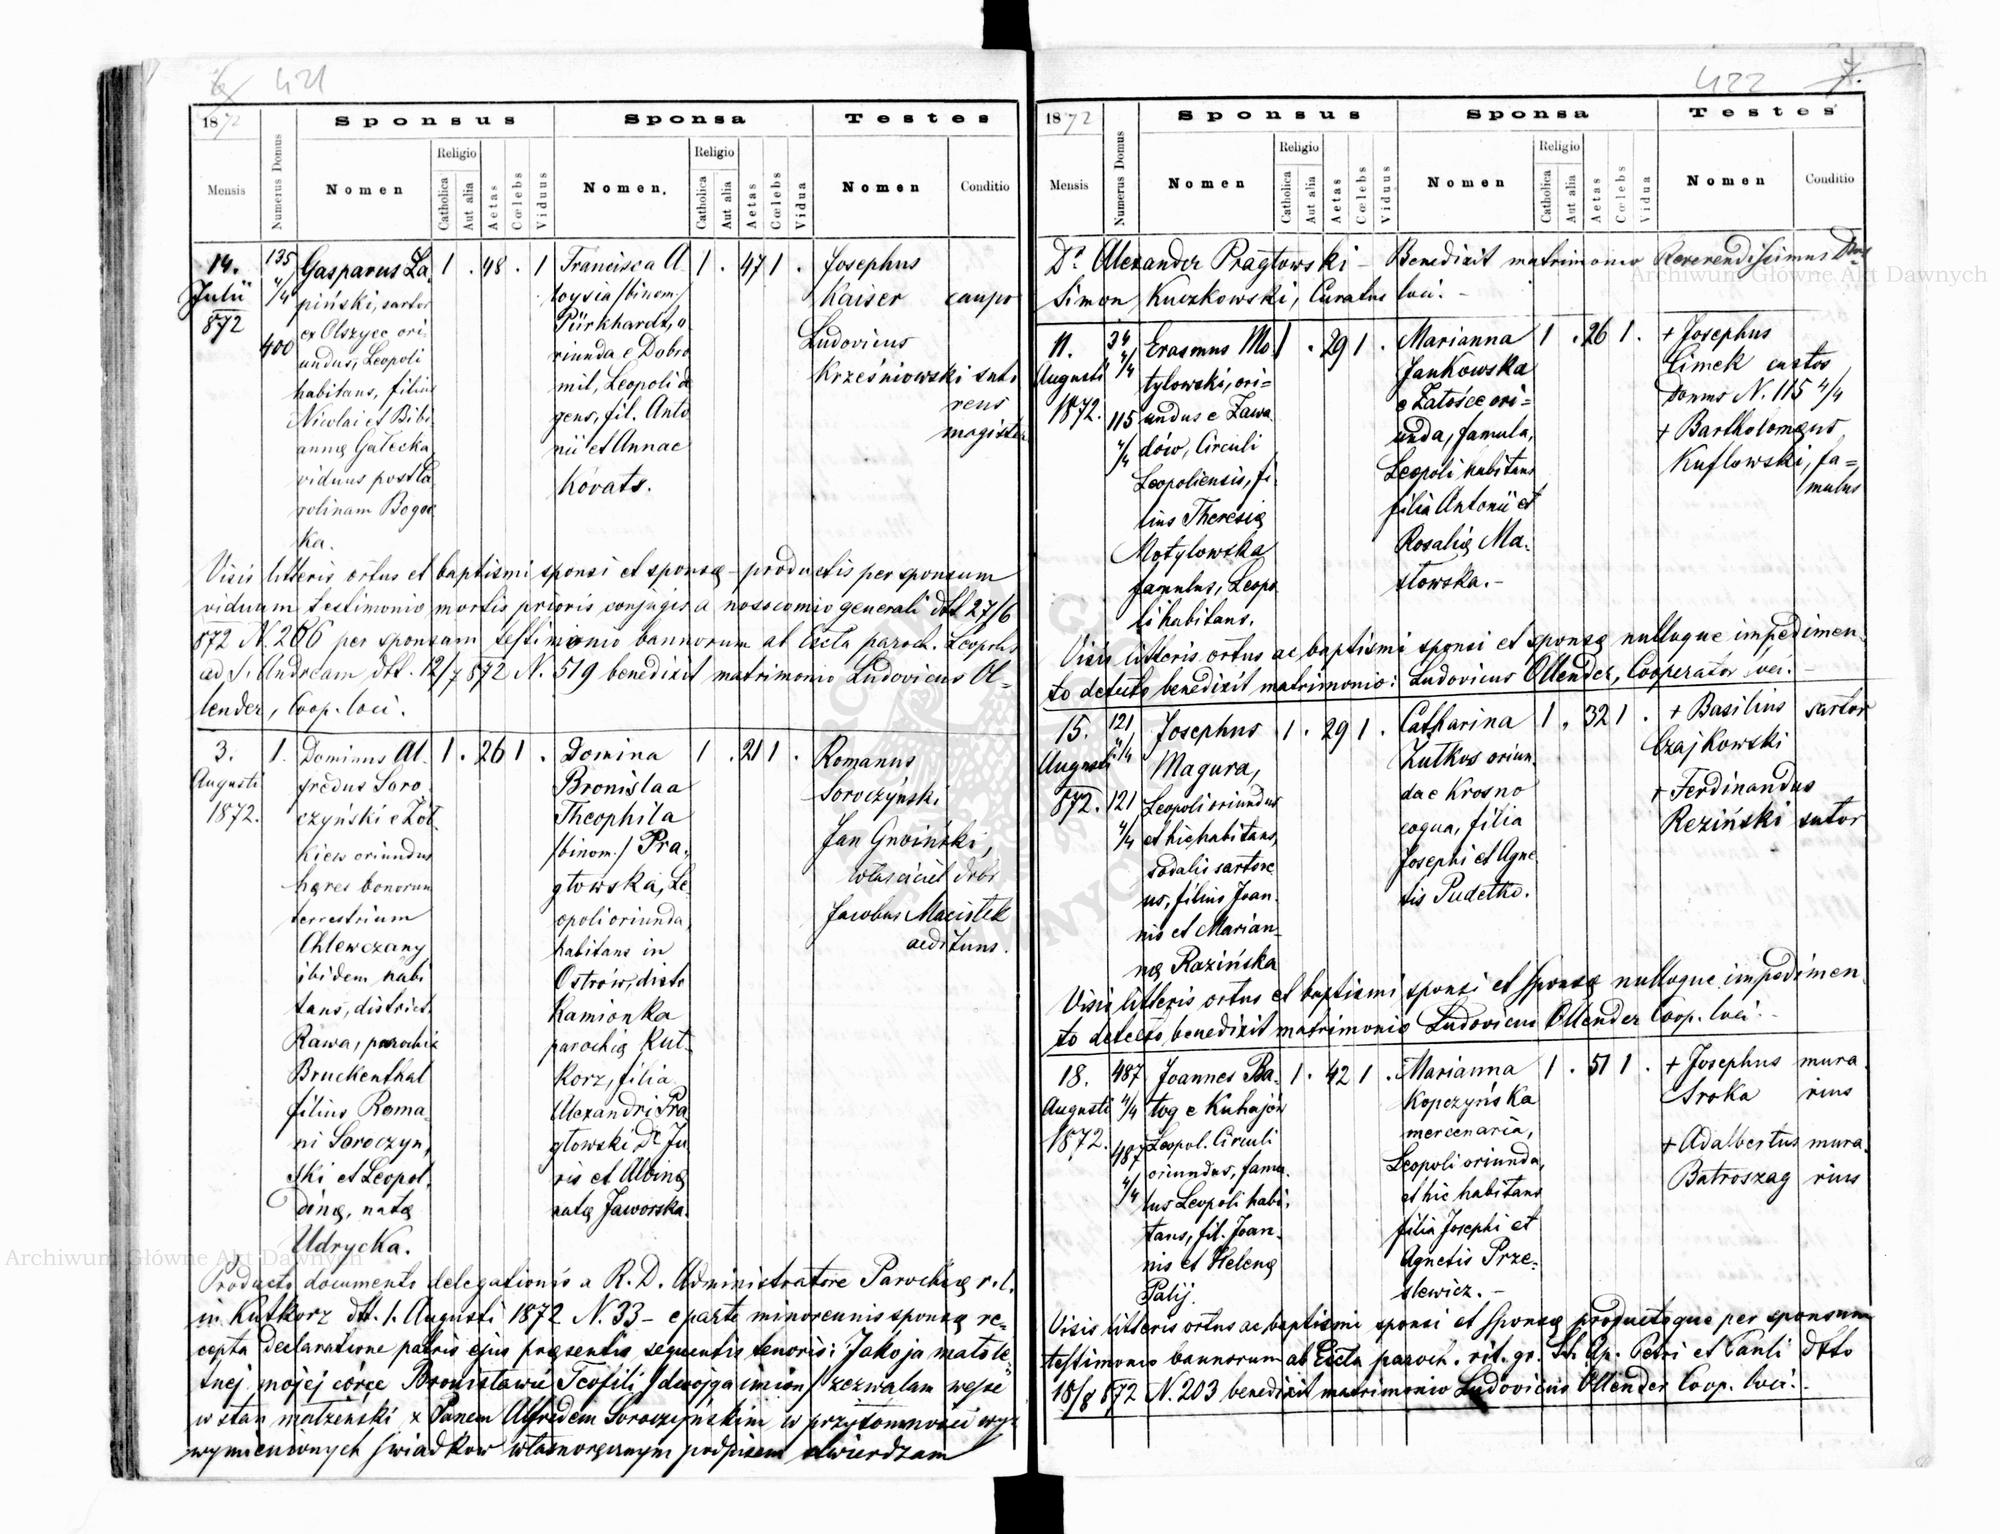 6 421
1872
Mensis
Numerus Domus
Sponsus
Nomen
Religio
Catholica
Aut alia
Aetas
Cœlebs
Viduus
Sponsa
Nomen.
Religio
Catholica
Aut alia
Aetas
Cœlebs
Vidua
Testes
Nomen
Conditio
14.
Julii
872
135
4/4
400
Gasparus La
piński, sartor
ex Olszyce ori
undus, Leopoli
habitans, filius
Nicolai et Bibi
annę Gałecka,
viduus post Ca
rolinam Bogoc
ka.
1 . 48 . 1
Francisca A
loysia /binom/
Pürkhardt, o
riunda e Dobro
mil, Leopoli de
gens, fil. Anto
nii et Annae
Kovats.
1 . 47 1 .
Josephus
Kaiser caupo
Ludovicus
Krześniowski suto
reus
magister
Visis litteris ortus et baptismi sponsi et sponsę – productis per sponsum
viduum testimonio mortis prioris conjugis a nosocomio generali dtt 27/6
872 N. 266 per sponsam testimonio bannorum ab Eccla paroch. Leopolis
ad S. Andream dtt. 12/7 872 N. 519 benedixit matrimonio Ludovicus Ol=
lender, Coop. loci.
3.
Augusti
1872.
1.
Dominus Al
fredus Soro
czyński e Żół
kiew oriundus
hęres bonorum
terrestrium
Chlewczany
ibidem habi
tans, district.
Rawa, parochię
Bruckenthal
filius Roma
ni Soroczyń,
ski et Leopol,
dinę, natę
Udrycka.
1 . 26 1 .
Domina
Bronislaa
Theophila
/binom./ Pra,
głowska, Le
opoli oriunda,
habitans in
Ostrów, distr.
Kamionka
parochię Kut
korz, filia
Alexandri Pra
głowski Dr. Ju
ris et Albinę
natę Jaworska.
1 . 21 1 .
Romanus
Soroczyński
Jan Gnoiński,
właściciel dóbr
Jacobus Maciołek
aedituus.
Producto documento delegationis a R. D. Administratore Parochię r. l.
in Kutkorz dtt. 1. Augusti 1872 N. 33 – e parte minorennis sponsę re=
cepta declaratione patris ejus pręsentis sequentis tenoris: Jako ja małole=
tnej mojej córce Bronisławie Teofili /dwojga imion/ zezwalam wejść
w stan małżeński z Panem Alfredem Soroczyńskim w przytomności wyż
wymienionych świadków własnoręcznym podpisem stwierdzam
422 7.
1872
Mensis
Numerus Domus
Sponsus
Nomen
Religio
Catholica
Aut alia
Aetas
Cœlebs
Viduus
Sponsa
Nomen
Religio
Catholica
Aut alia
Aetas
Cœlebs
Vidua
Testes
Nomen
Conditio
Dr Alexander Pragłowski – Benedixit matrimonio Reverendissimus Dnus
Simon Kuczkowski, Curatus loci. –
11.
Augusti
1872.
34
4/4
115
4/4
Erasmus Mo
tylowski, ori=
undus e Zawa
dów, Circuli
Leopoliensis, fi
lius Theresię
Motylowska
famulus, Leopo
li habitans.
1 . 29 1 .
Marianna
Jankowska
e Załośce ori=
unda, famula,
Leopoli habitans
filia Antonii et
Rosalię Ma=
słowska. –
1 . 26 1 .
+ Josephus
Cimek custos
domus N. 115 4/4
+ Bartholomęus
Kuflowski, fa=
mulus
Visis litteris ortus ac baptismi sponsi et sponsę nulloque impedimen
to detecto benedixit matrimonio: Ludovicus Ollender, Cooperator loci. –
15.
Augusti
872.
121
4/4
121
4/4
Josephus
Magura,
Leopoli oriundus
et hic habitans,
sodalis sartore
us, filius Joan
nis et Marian
nę Razińska
1 . 29 1 .
Catharina
Żutkos oriun
da e Krosno
coqua, filia
Josephi et Agne
tis Pudełko.
1 . 32 1 .
+ Basilius sartor
Czajkowski
+ Ferdinandus
Reziński sutor
Visis litteris ortus et baptismi sponsi et sponsę nulloque impedimen
to detecto benedixit matrimonio Ludovicus Ollender Coop. loci. –
18.
Augusti
1872.
487
4/4
487
4/4
Joannes Ba=
tog e Kuhajów
Leopol. Circuli
oriundus, famu
lus Leopoli habi,
tans, fil. Joan
nis et Helenę
Palij.
1 . 42 1 .
Marianna
Kopczyńska
mercenaria,
Leopoli oriunda,
et hic habitans
filia Josephi et
Agnetis Prze=
slewicz. –
1 . 51 1 .
+ Josephus mura
Sroka rius
+ Adalbertus mura
Batroszag rius
Visis litteris ortus ac baptismi sponsi et sponsę productoque per sponsum
testimonio bannorum ab Eccla paroch. rit. gr. SS. Ap. Petri et Pauli dtto
18/8 872 N. 203 benedixit matrimonio Ludovicus Ollender Coop. loci. –
Archiwum Główne Akt Dawnych
Archiwum Główne Akt Dawnych